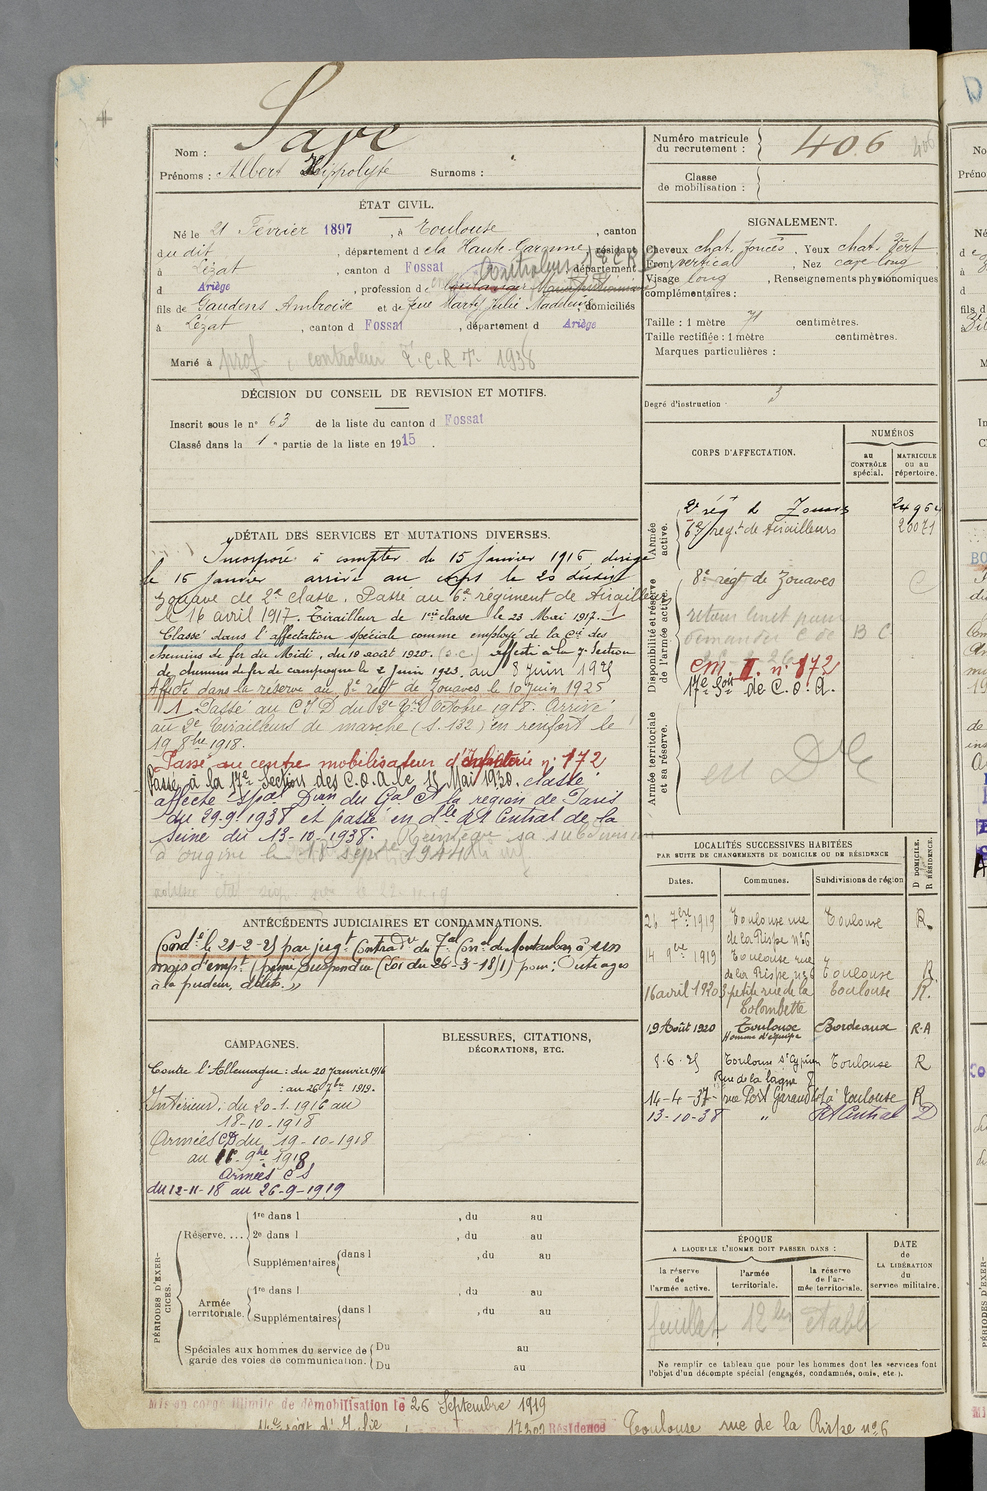 Nom : Save
Prénoms : Albert Hippolyte Surnoms :
Numéro matricule du recrutement : 406
406
Classe de mobilisation :
ÉTAT CIVIL.
Né le 21 Février 1897, à Toulouse, canton
du dit, département de la Haute-Garonne, résidant
à Lézat, canton d Fossat, département
d Ariège, profession de Controleur T C R P
fils de Gaudens Ambroise et de Marty Julie Madeleine, domiciliés
à Lézat, canton d Fossat, département d Ariège
Marié à
prof. controleur T.C.R.T. 1938
SIGNALEMENT.
Cheveux chat. foncés, Yeux chat. vert
Front vertical, Nez cave long
Visage long, Renseignements physionomiques
complémentaires :
Taille : 1 mètre 71 centimètres.
Taille rectifiée : 1 mètre centimètres.
Marques particulières :
Degré d'instruction : 3
DÉCISION DU CONSEIL DE REVISION ET MOTIFS.
Inscrit sous le n° 63 de la liste du canton d Fossat
Classé dans la 1e partie de la liste en 1915.
DÉTAIL DES SERVICES ET MUTATIONS DIVERSES.
Incorporé à compter du 15 Janvier 1916, dirigé
le 16 Janvier arrivé au corps le 20 du dit
Zouave de 2e classe. Passé au 6e régiment de tirailleurs
le 16 avril 1917. Tirailleur de 1ère classe le 23 Mai 1917.
Classé dans l'affectation spéciale comme employé de la Cie des
chemins de fer du Midi, du 19 août 1920. affecté à la 7e Section
de chemins de fer de campagne le 2 Juin 1923. au 8 Juin 1925
Affecté dans la réserve au 8e régt de Zouaves le 10 juin 1925
1 Passé au C I D du 2e Octobre 1918. Arrivé
au 2e tirailleurs de marche (S. 132) en renfort le
19 8bre 1918.
Passé au centre mobilisateur d'Infanterie n° 172
Passé à la 17e Section des C.O.A. le 15 Mai 1930. classé
affecté spal Dion du Gal et la région de Paris
du 29.9.1938 et passé en dle Rt Central de la
Seine du 13-10-1938. Réintègre sa subdivision
à origine le 18 septbre 1944
CORPS D'AFFECTATION.
NUMÉROS
AU CONTRÔLE spécial.
MATRICULE ou au répertoire.
Armée active.
2e rég t de Zouaves
6e régt de tirailleurs 26071
Disponibilité et réserve de l'armée active.
8e régt de Zouaves C
B C
CM. I. n° 172
17e Son de C.O.A.
Armée territoriale et sa réserve.
LOCALITÉS SUCCESSIVES HABITÉES
PAR SUITE DE CHANGEMENTS DE DOMICILE OU DE RÉSIDENCE
Dates. Communes. Subdivisions de région D DOMICILE. R RÉSIDENCE.
26 7bre 1919 Toulouse rue de la Rispe n° 6 Toulouse R.
14 9bre 1919 Toulouse rue de la Rispe n° 6 Toulouse R
16 avril 1920 3 petite rue de la Colombette Toulouse R.
19 Août 1920 Toulouse Homme d'équipe Bordeaux R.A
8.6.25 Toulouse St Cyprien Rue de la Lagne 8 Toulouse R
14-4-37 rue Port Garaud Toulouse R
13-10-38 " Rt Central D
ANTÉCÉDENTS JUDICIAIRES ET CONDAMNATIONS.
Condé le 21-2-25 par jugt Contradre du Tal Conel de Montauban à un
mois d'empt (peine suspendue (Loi du 26-3-1891) pour : Outrages
à la pudeur, délits. »
CAMPAGNES.
Contre l'Allemagne : du 20 Janvier 1916
: au 26 7bre 1919.
Intérieur : du 20-1-1916 au
18-10-1918
Armées CD du 19-10-1918
au 11-9bre 1918
Armées C S
du 12-11-18 au 26-9-1919
BLESSURES, CITATIONS,
DÉCORATIONS, ETC.
PÉRIODES D'EXERCICES.
Réserve....
1re dans l , du au
2e dans l , du au
Supplémentaires dans l , du au
Armée territoriale.
1re dans l , du au
Supplémentaires dans l , du au
Spéciales aux hommes du service de garde des voies de communication.
Du au
Du au
ÉPOQUE
A LAQUELLE L'HOMME DOIT PASSER DANS :
la réserve de l'armée active.
l'armée territoriale.
la réserve de l'armée territoriale.
DATE de LA LIBÉRATION du service militaire.
feuillet 12 bis établi
Ne remplir ce tableau que pour les hommes dont les services font
l'objet d'un décompte spécial (engagés, condamnés, omis, etc.).
Mis en congé illimité de démobilisation le 26 Septembre 1919
Résidence Toulouse rue de la Rispe n° 6